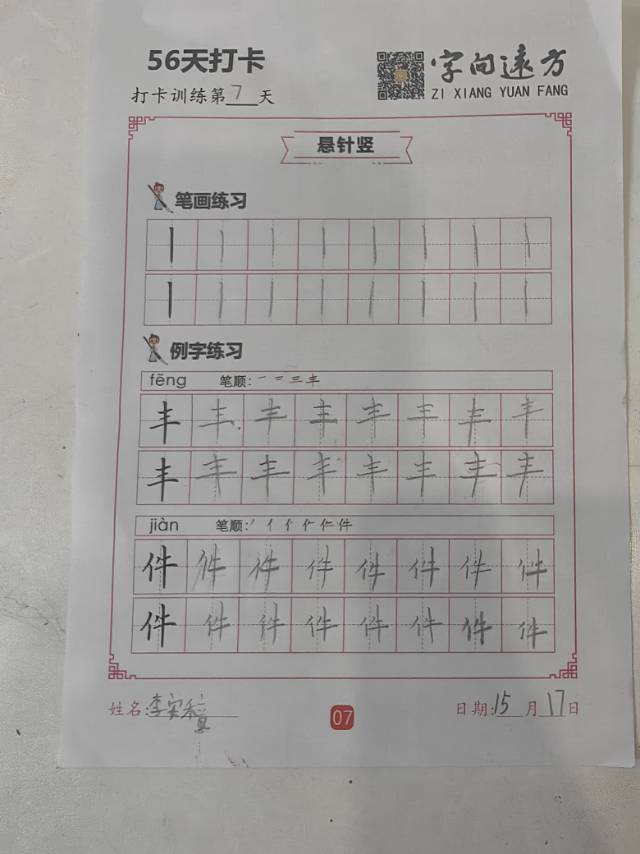 56天打卡
字向远方
ZI XIANG YUAN FANG
打卡训练第7天
悬针竖
笔画练习
丨 丨 丨 丨 丨 丨 丨 丨
丨 丨 丨 丨 丨 丨 丨 丨
例字练习
fēng 笔顺: 一 二 三 丰
丰 丰 丰 丰 丰 丰 丰 丰
丰 丰 丰 丰 丰 丰 丰 丰
jiàn 笔顺:
件 件 件 件 件 件 件 件
件 件 件 件 件 件 件 件
姓名:李
07
日期:15月17日